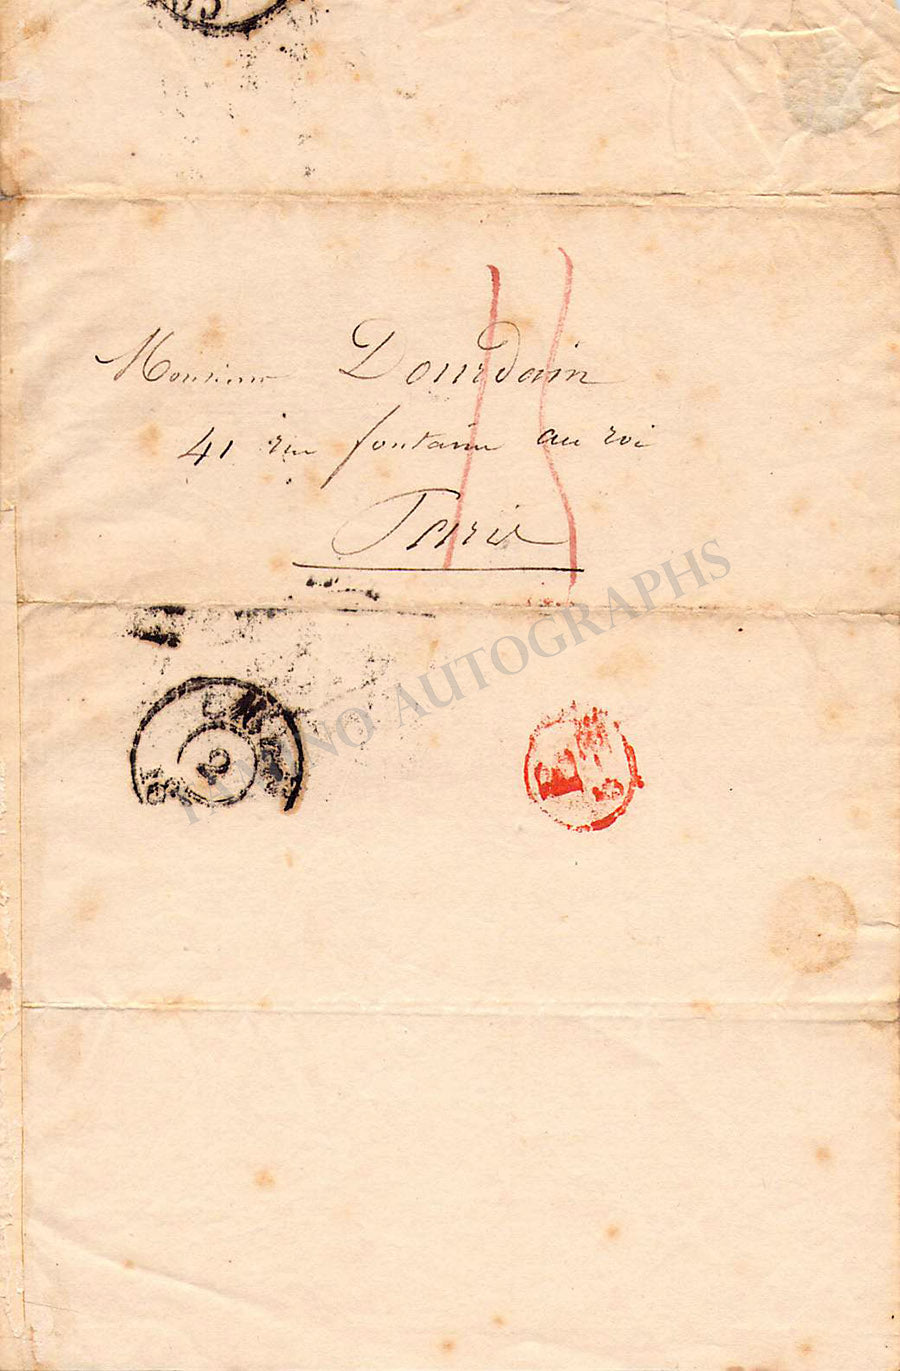 Monsieur Dourdain
41 rue fontaine au roi
Paris
TAMINO AUTOGRAPHS
2